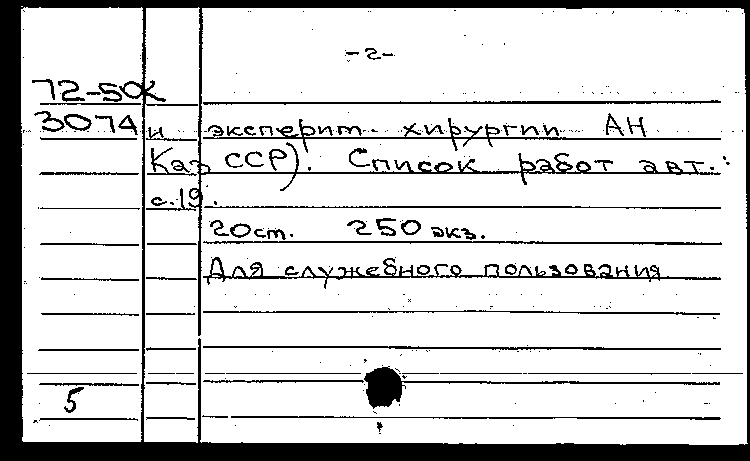 -2-
72-50К
3074 и эксперит. хирургии АН
Каз ССР). Список работ авт.:
с.19.
20ст. 250 экз.
Для служебного пользования
5